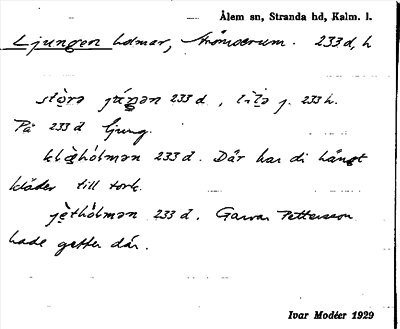 Ålem sn, Stranda hd, Kalm. l.
Ljungen holmar, Strömserum. 233 d, h
stòrə jə́ŋən 233 d, lìlə j. 233 h.
På 233 d ljung.
klə̀hólmən 233 d. Där har di hängt
kläder till tork.
jèthólmən 233 d. Garvar Pettersson
hade getter där.
Ivar Modéer 1929